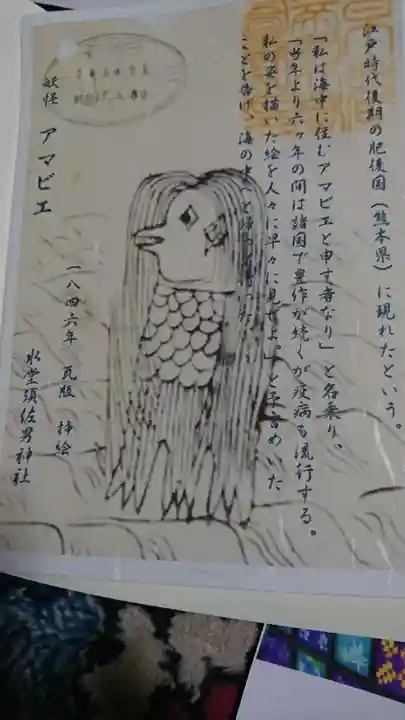 江戸時代後期の肥後国(熊本県)に現れたという。
「私は海中に住むアマビエと申す者なり」と名乗り。
「当年より六ヶ年の間は諸国で豊作が続くが疫病も流行する。
私の姿を描いた絵を人々に早々に見せよ。」と予言めいた
ことを告げ、海の中へと帰って行った。
妖怪 アマビエ
一八四六年 瓦版 挿絵
水堂須佐男神社